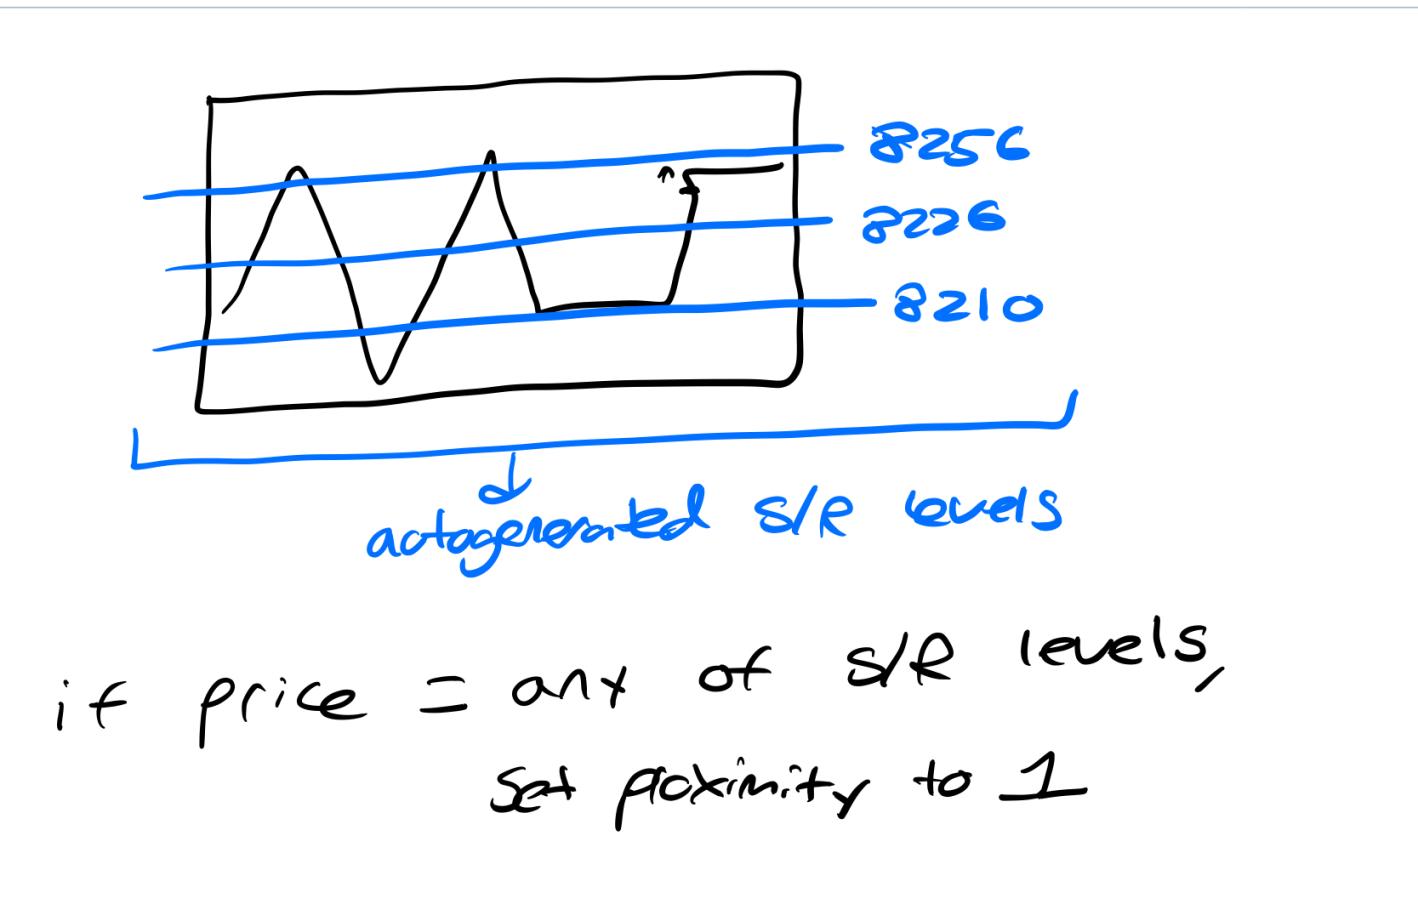 8256
8226
8210
autogenerated S/R levels
if price = any of S/R levels,
set proximity to 1